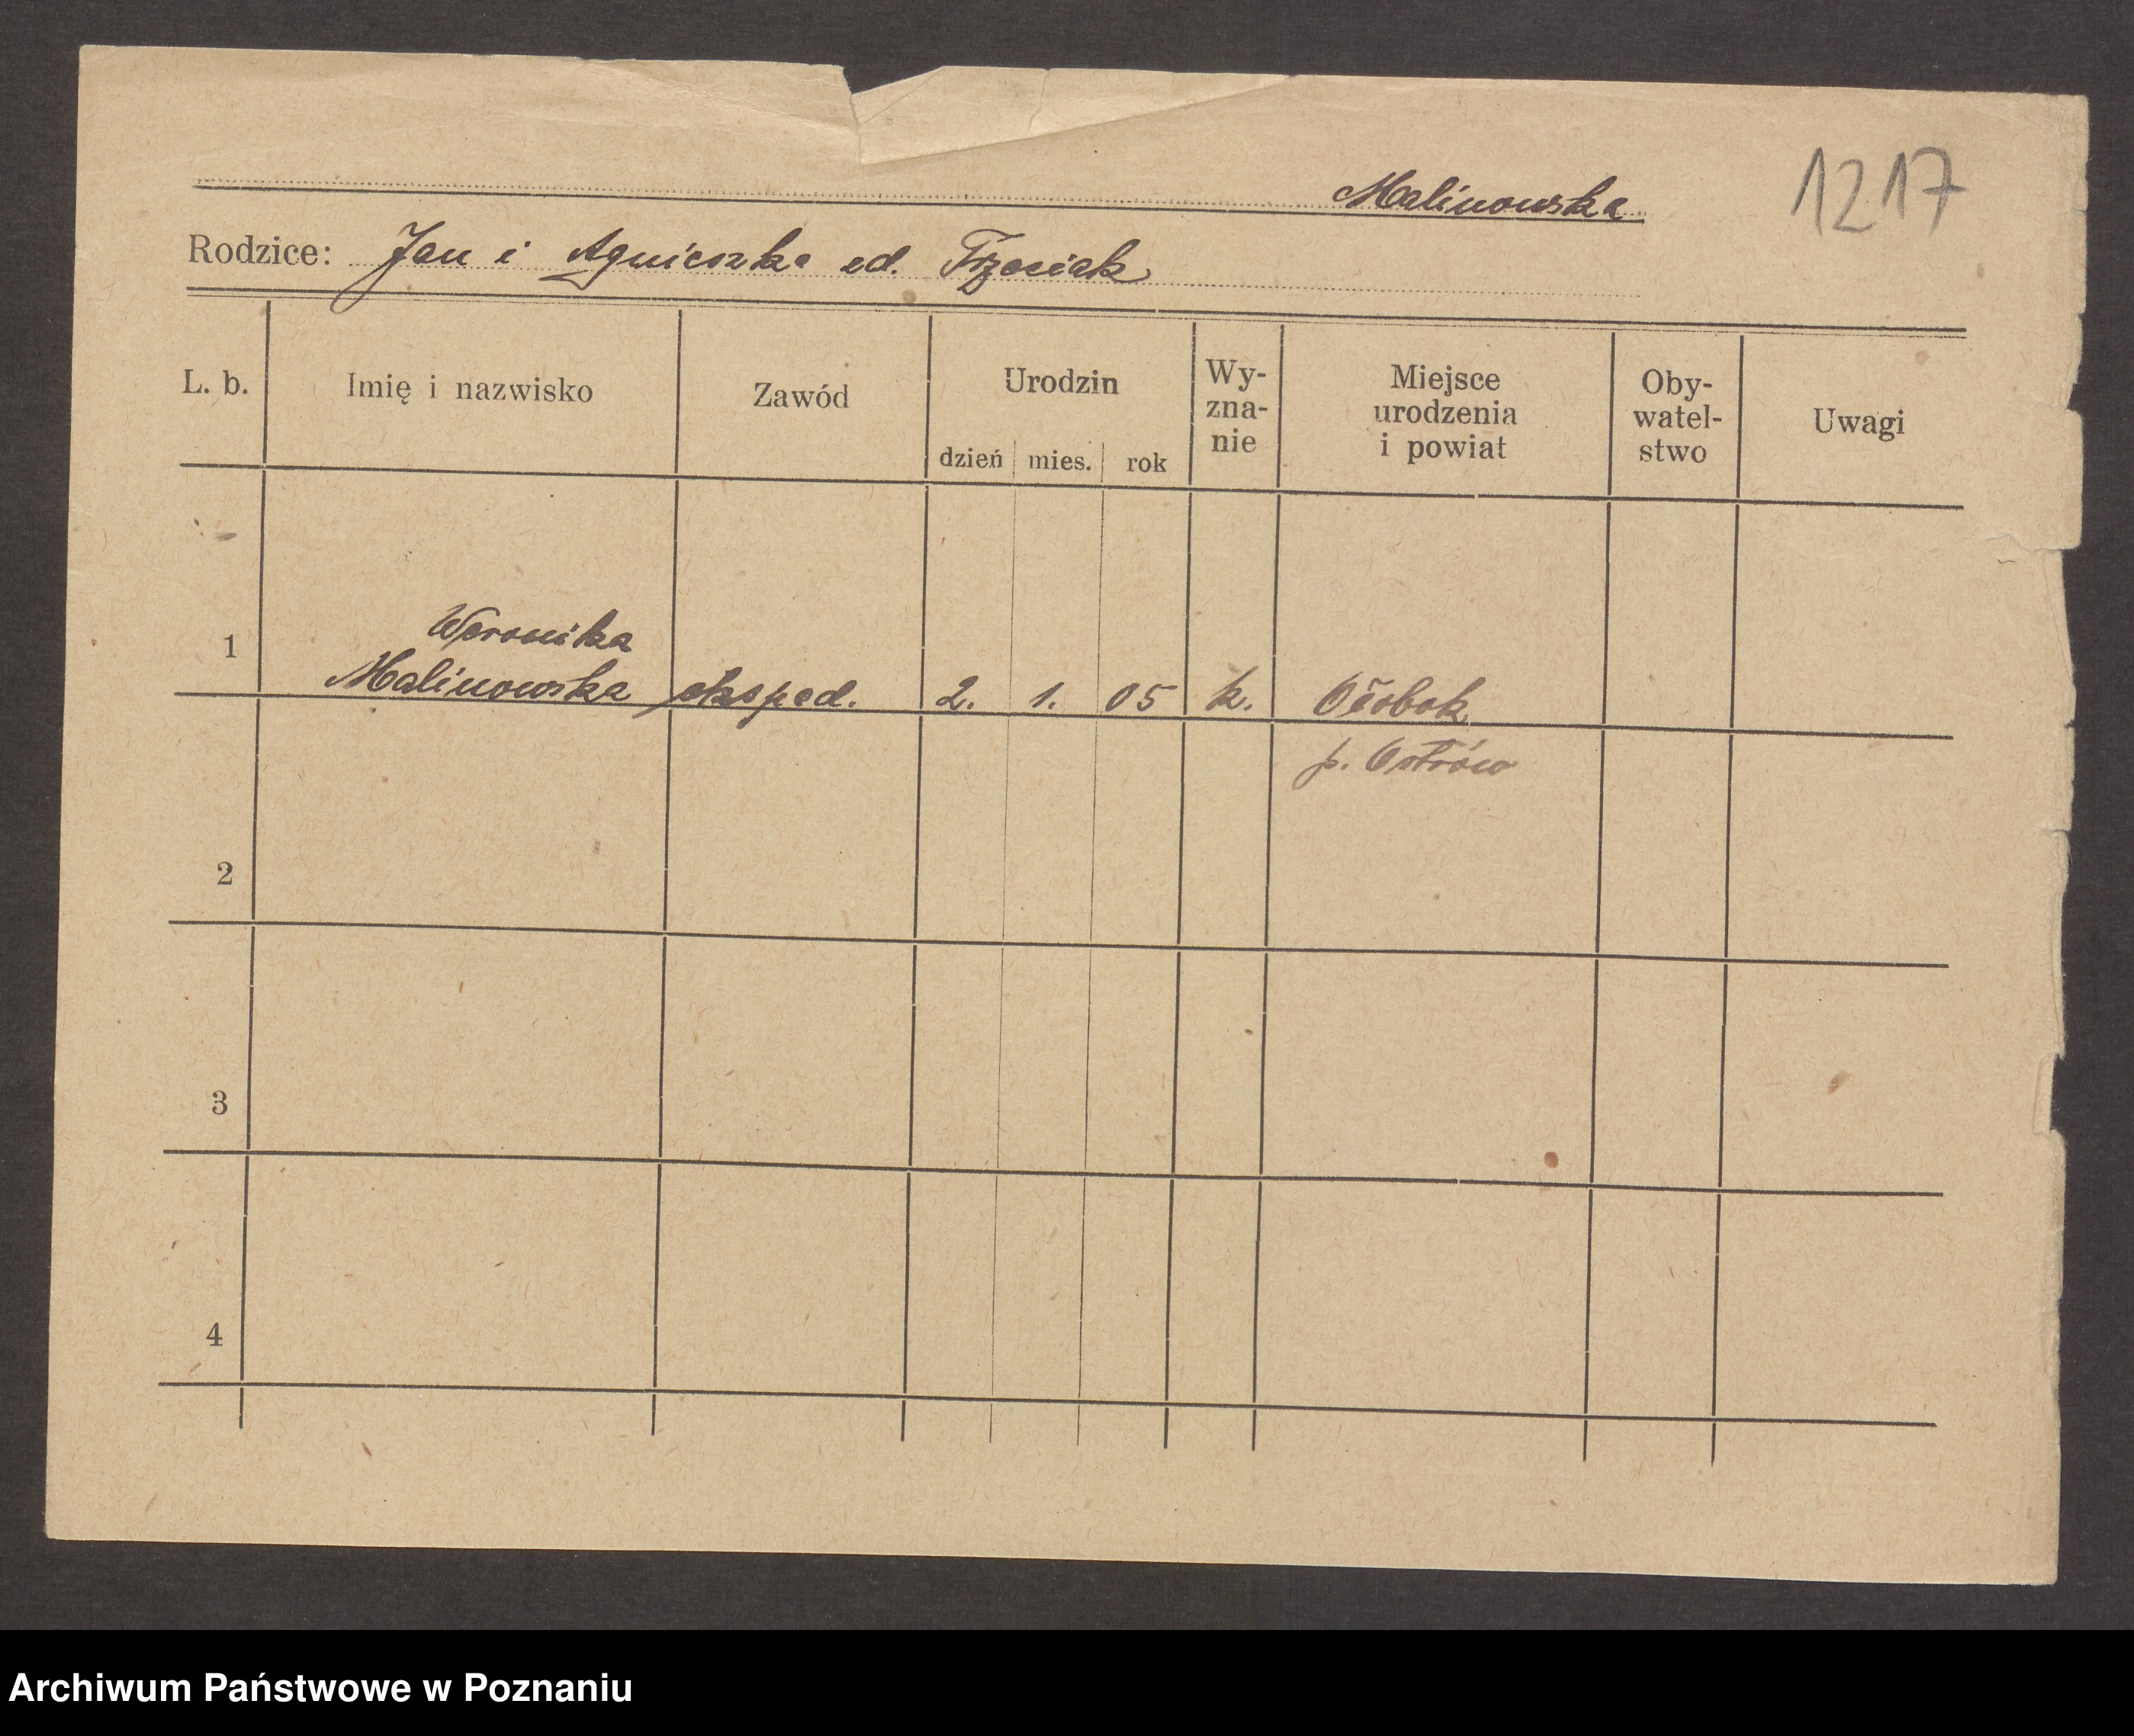 Malinowska
1217
Rodzice: Jan i Agnieszka zd. Trzeciak
L. b.
Imię i nazwisko
Zawód
Urodzin
dzień mies. rok
Wy-
zna-
nie
Miejsce
urodzenia
i powiat
Oby-
watel-
stwo
Uwagi
Weronika
1 Malinowska eksped. 2. 1. 05 k. Ołobok
p. Ostrów
2
3
4
Archiwum Państwowe w Poznaniu